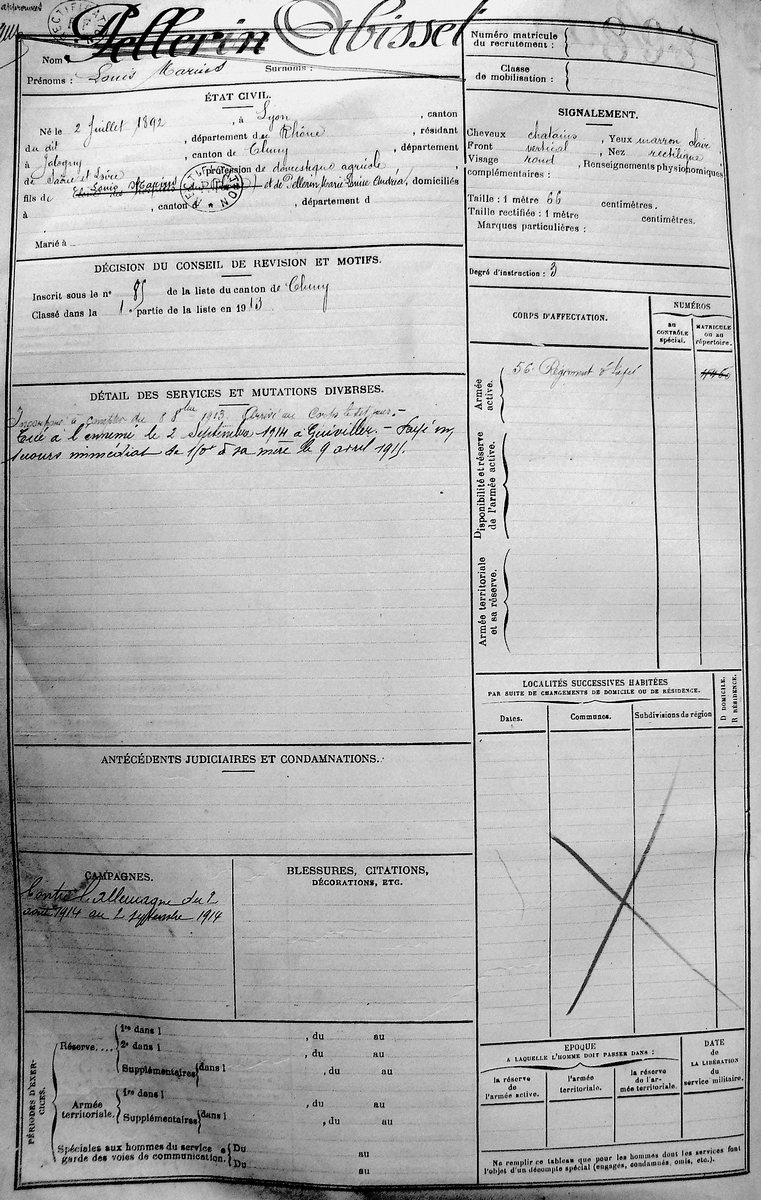 approuvés
Nom Pellerin Abisset
Prénoms : Louis Marius Surnoms :
ÉTAT CIVIL.
Né le 2 Juillet 1892, à Lyon, canton
du dit, département de Rhône, résidant
à Jalogny, canton de Cluny, département
de Saône et Loire, profession de domestique agricole,
fils de Louis Marius et de Pellerin Marie Louise Andréa, domiciliés
à , canton d , département d
Marié à
DÉCISION DU CONSEIL DE REVISION ET MOTIFS.
Inscrit sous le n° 85 de la liste du canton de Cluny
Classé dans la 1e partie de la liste en 1913
DÉTAIL DES SERVICES ET MUTATIONS DIVERSES.
Incorporé à compter du 8 8bre 1913. Arrivé au Corps le dit jour. -
Tué à l'ennemi le 2 Septembre 1914 à Gerviller. - Payé un
secours immédiat de 150f à sa mère le 9 avril 1915.
ANTÉCÉDENTS JUDICIAIRES ET CONDAMNATIONS.
CAMPAGNES.
Contre l'Allemagne du 2
août 1914 au 2 septembre 1914
BLESSURES, CITATIONS,
DÉCORATIONS, ETC.
PÉRIODES D'EXERCICES.
Réserve....
1re dans l , du au
2e dans l , du au
Supplémentaires dans l , du au
Armée territoriale.
1re dans l , du au
Supplémentaires dans l , du au
Spéciales aux hommes du service de
garde des voies de communication.
Du au
Du au
Numéro matricule
du recrutement :
Classe
de mobilisation :
SIGNALEMENT.
Cheveux chatains, Yeux marron clair
Front vertical, Nez rectiligne
Visage rond, Renseignements physionomiques
complémentaires :
Taille : 1 mètre 66 centimètres.
Taille rectifiée : 1 mètre centimètres.
Marques particulières :
Degré d'instruction : 3
CORPS D'AFFECTATION.
NUMÉROS
AU CONTRÔLE spécial.
MATRICULE OU AU répertoire.
Armée active.
56e Régiment d'Infie
Disponibilité et réserve de l'armée active.
Armée territoriale et sa réserve.
LOCALITÉS SUCCESSIVES HABITÉES
PAR SUITE DE CHANGEMENTS DE DOMICILE OU DE RÉSIDENCE.
D DOMICILE.
R RÉSIDENCE.
Dates.
Communes.
Subdivisions de région
EPOQUE
A LAQUELLE L'HOMME DOIT PASSER DANS :
la réserve de l'armée active.
l'armée territoriale.
la réserve de l'armée territoriale.
DATE
de
LA LIBÉRATION
du
service militaire.
Ne remplir ce tableau que pour les hommes dont les services font
l'objet d'un décompte spécial (engagés, condamnés, omis, etc.).